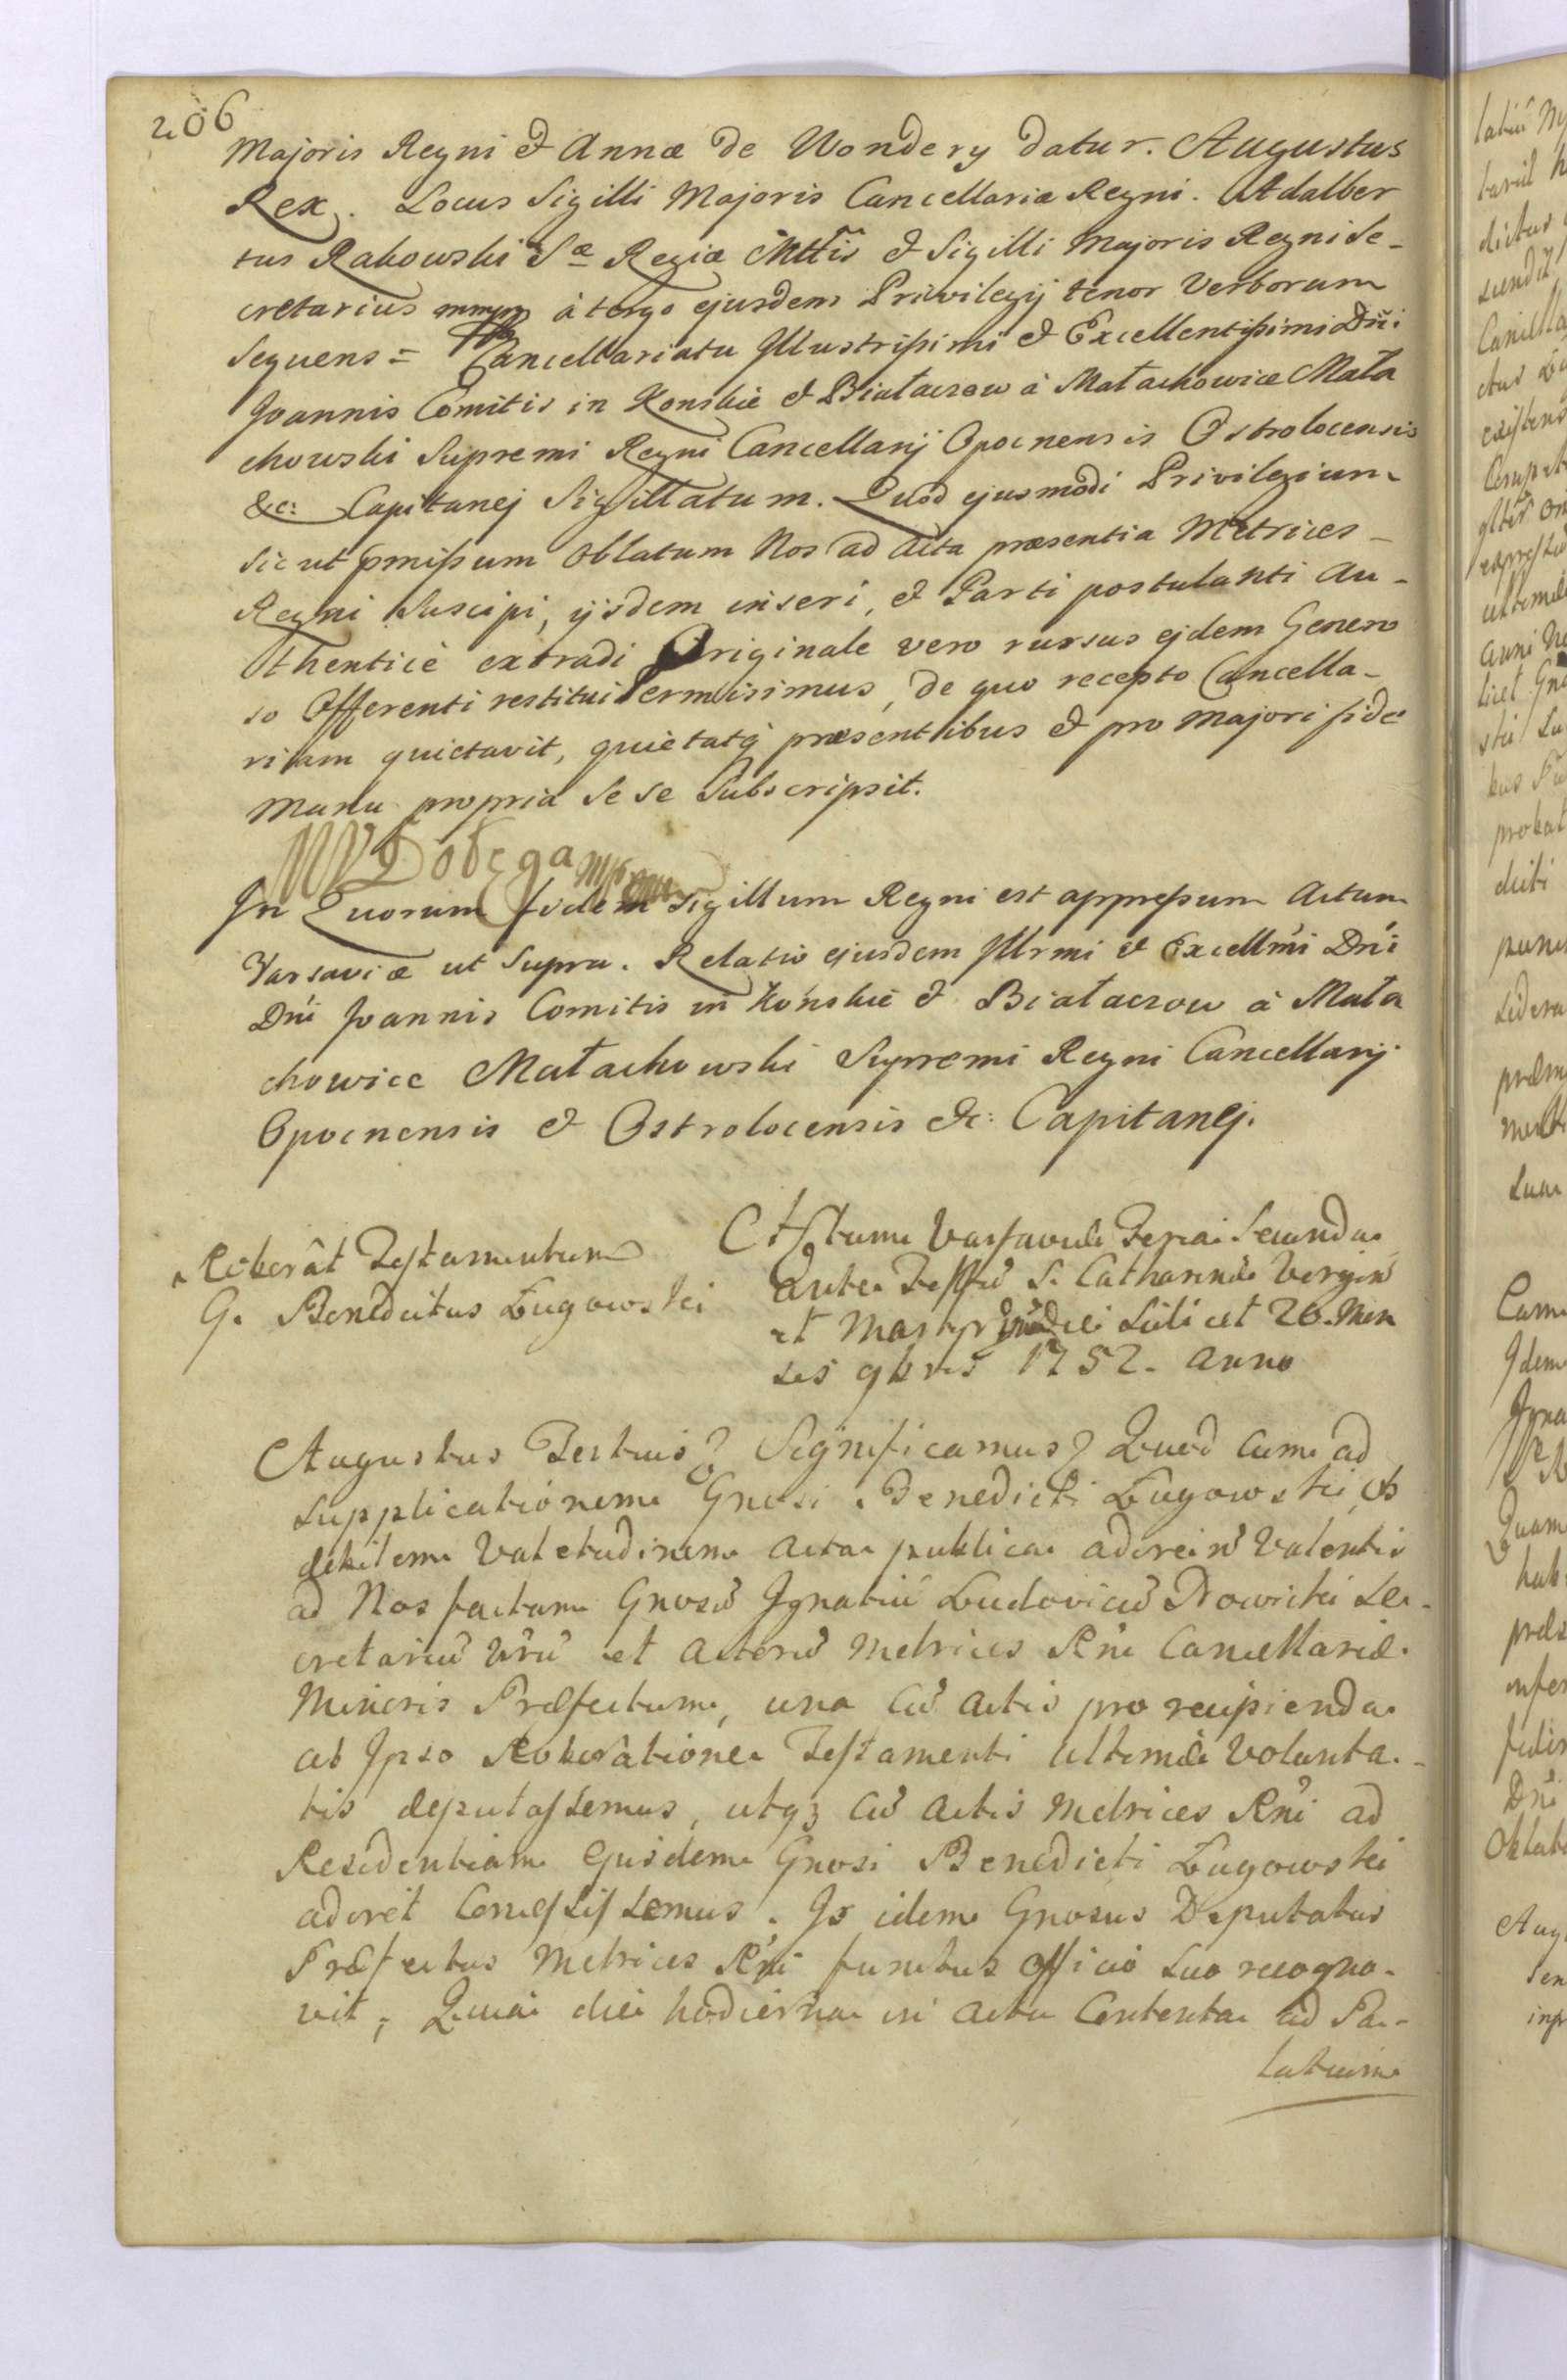 206
Majoris Regni & Annæ de Wondery datur. Augustus
Rex. Locus Sigilli Majoris Cancellariæ Regni. Adalber
tus Rakowski Sæ Regiæ Mttis & Sigilli Majoris Regni Se-
cretarius mmpp à tergo ejusdem Privilegij tenor Verborum
Sequens = Cancellariatu Illustrissimi & Excellentissimi Dñi
Joannis Comitis in Konskie & Białaczow à Małachowice Mała
chowski Supremi Regni Cancellarij Opocnensis Ostrolocensis
&c: Capitanej Sigillatum. Quod ejusmodi Privilegium
sic ut pmissum Oblatum Nos ad Acta præsentia Metrices
Regni Suscipi, ijsdem inseri, & Parti postulanti Au-
thenticè extradi Originale vero rursus ejdem Genero
so Offerenti restitui Permisimus, de quo recepto Cancella-
riam quietavit, quietatq præsentibus & pro majori fide
manu propria Se se Subscripsit.
In Quorum fidem Sigillum Regni est appressum Actum
Varsaviæ ut Supra. Relatio ejusdem Illrmi & Excellmi Dni
Dni Joannis Comitis in Końskie & Białaczow à Mała
chowice Małachowski Supremi Regni Cancellarij
Opocnensis & Ostrolocensis &c: Capitanej.
Roborat Testamentum
G. Benedictus Ługowski
Actum Varsaviæ Feria Secunda
ante Festũ S. Catharinæ Virgin
et Martyr die Scilicet 20. Men
sis 9bris 1752. Anno
Augustus Tertius Significamus Quod cum ad
supplicationem Gnosi Benedicti Ługowski, ob
debilem Valetudinem Acta publica adire nõ Valentis
ad Nos factam Gnosũ Ignatiũ Ludovicũ Nowicki Se-
cretariũ Nrũ et Actorũ Metrices Rni Cancellariæ
Minoris Præfectum, una cũ Actis pro recipienda
ab Ipso Roboratione Testamenti ultimæ Volunta-
tis deputassemus, utqz cũ Actis Metrices Rni ad
Residentiam Ejusdem Gnosi Benedicti Ługowski
adiret Concessissemus. Is idem Gnosus Deputatus
Præfectus Metrices Rni functus Officio suo recogno-
vit, Quia die hodierna in Actu Contenta ad Pa-
latium